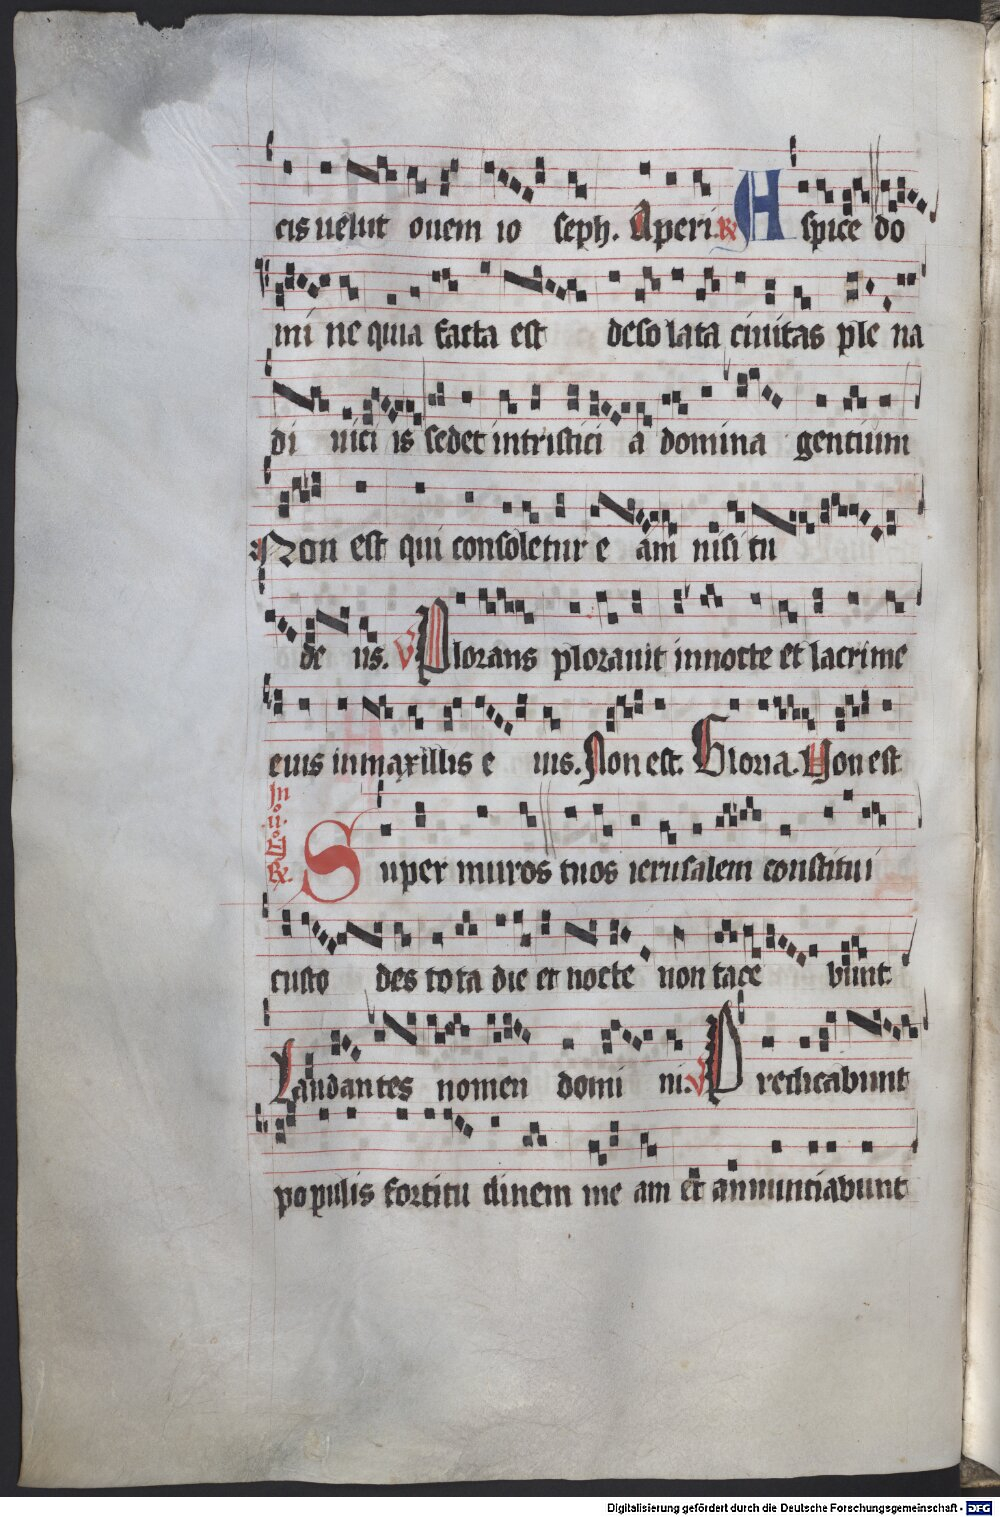 cis uelut ouem io seph. Aperi. R Aspice do
mi ne quia facta est deso lata ciuitas ple na
di uici is sedet intristici a domina gentium
Non est qui consoletur e am nisi tu
de us. V Plorans plorauit innocte et lacrime
eius inmaxillis e ius. Non est. Gloria. Non est
In
Super muros tuos ierusalem constitui
R.
custo des tota die et nocte non tace bunt.
Laudantes nomen domi ni. V Predicabunt
populis fortitu dinem me am et annunciabunt
Digitalisierung gefördert durch die Deutsche Forschungsgemeinschaft - DFG